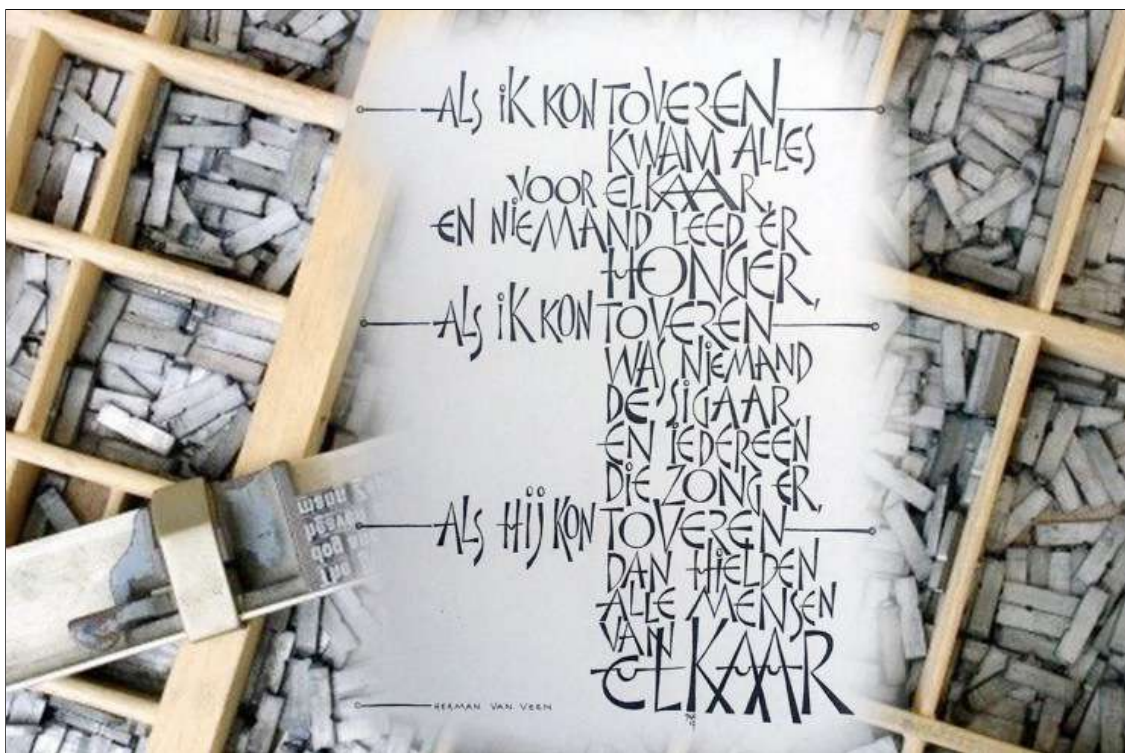 ALS iK KON TOVEREN
KWAM ALLES
VOOR ELKAAR,
EN NIEMAND LEED ER
HONGER,
ALS iK KON TOVEREN
WAS NIEMAND
DE SIGAAR,
EN IEDEREEN
DIE ZONG ER,
ALS HIJ KON TOVEREN
DAN HIELDEN
ALLE MENSEN
VAN
ELKAAR
HERMAN VAN VEEN